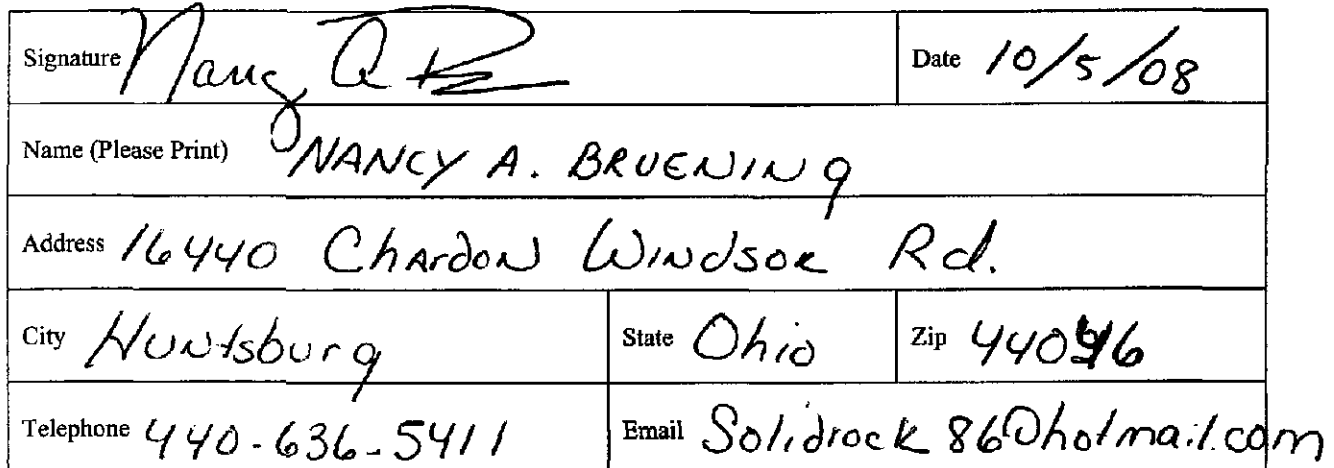 Signature Nancy A Date 10/5/08
Name (Please Print) NANCY A. BRUENING
Address 16440 Chardon Windsor Rd.
City Huntsburg State Ohio Zip 44046
Telephone 440-636-5411 Email Solidrock86@hotmail.com